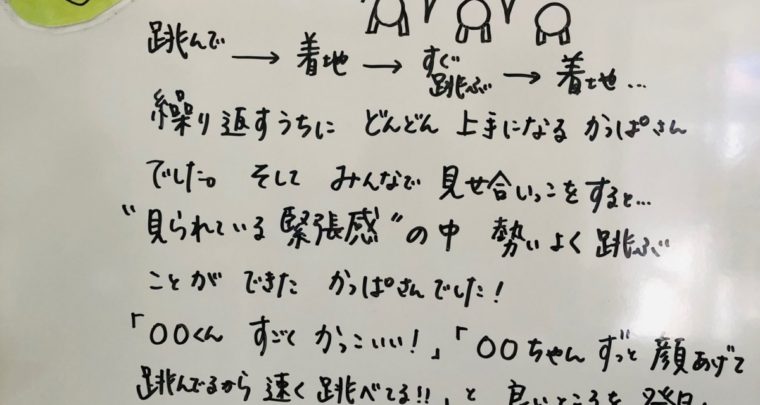 跳んで → 着地 → すぐ跳ぶ → 着地…
繰り返すうちに どんどん 上手になる かっぱさん
でした。 そして みんなで 見せ合いっこをすると…
“見られている緊張感”の中 勢いよく 跳ぶ
ことが できた かっぱさんでした!
「〇〇くん すごく かっこいい!」「〇〇ちゃん ずっと 顔あげて
跳んでるから 速く 跳べてる!!」と 良いところを